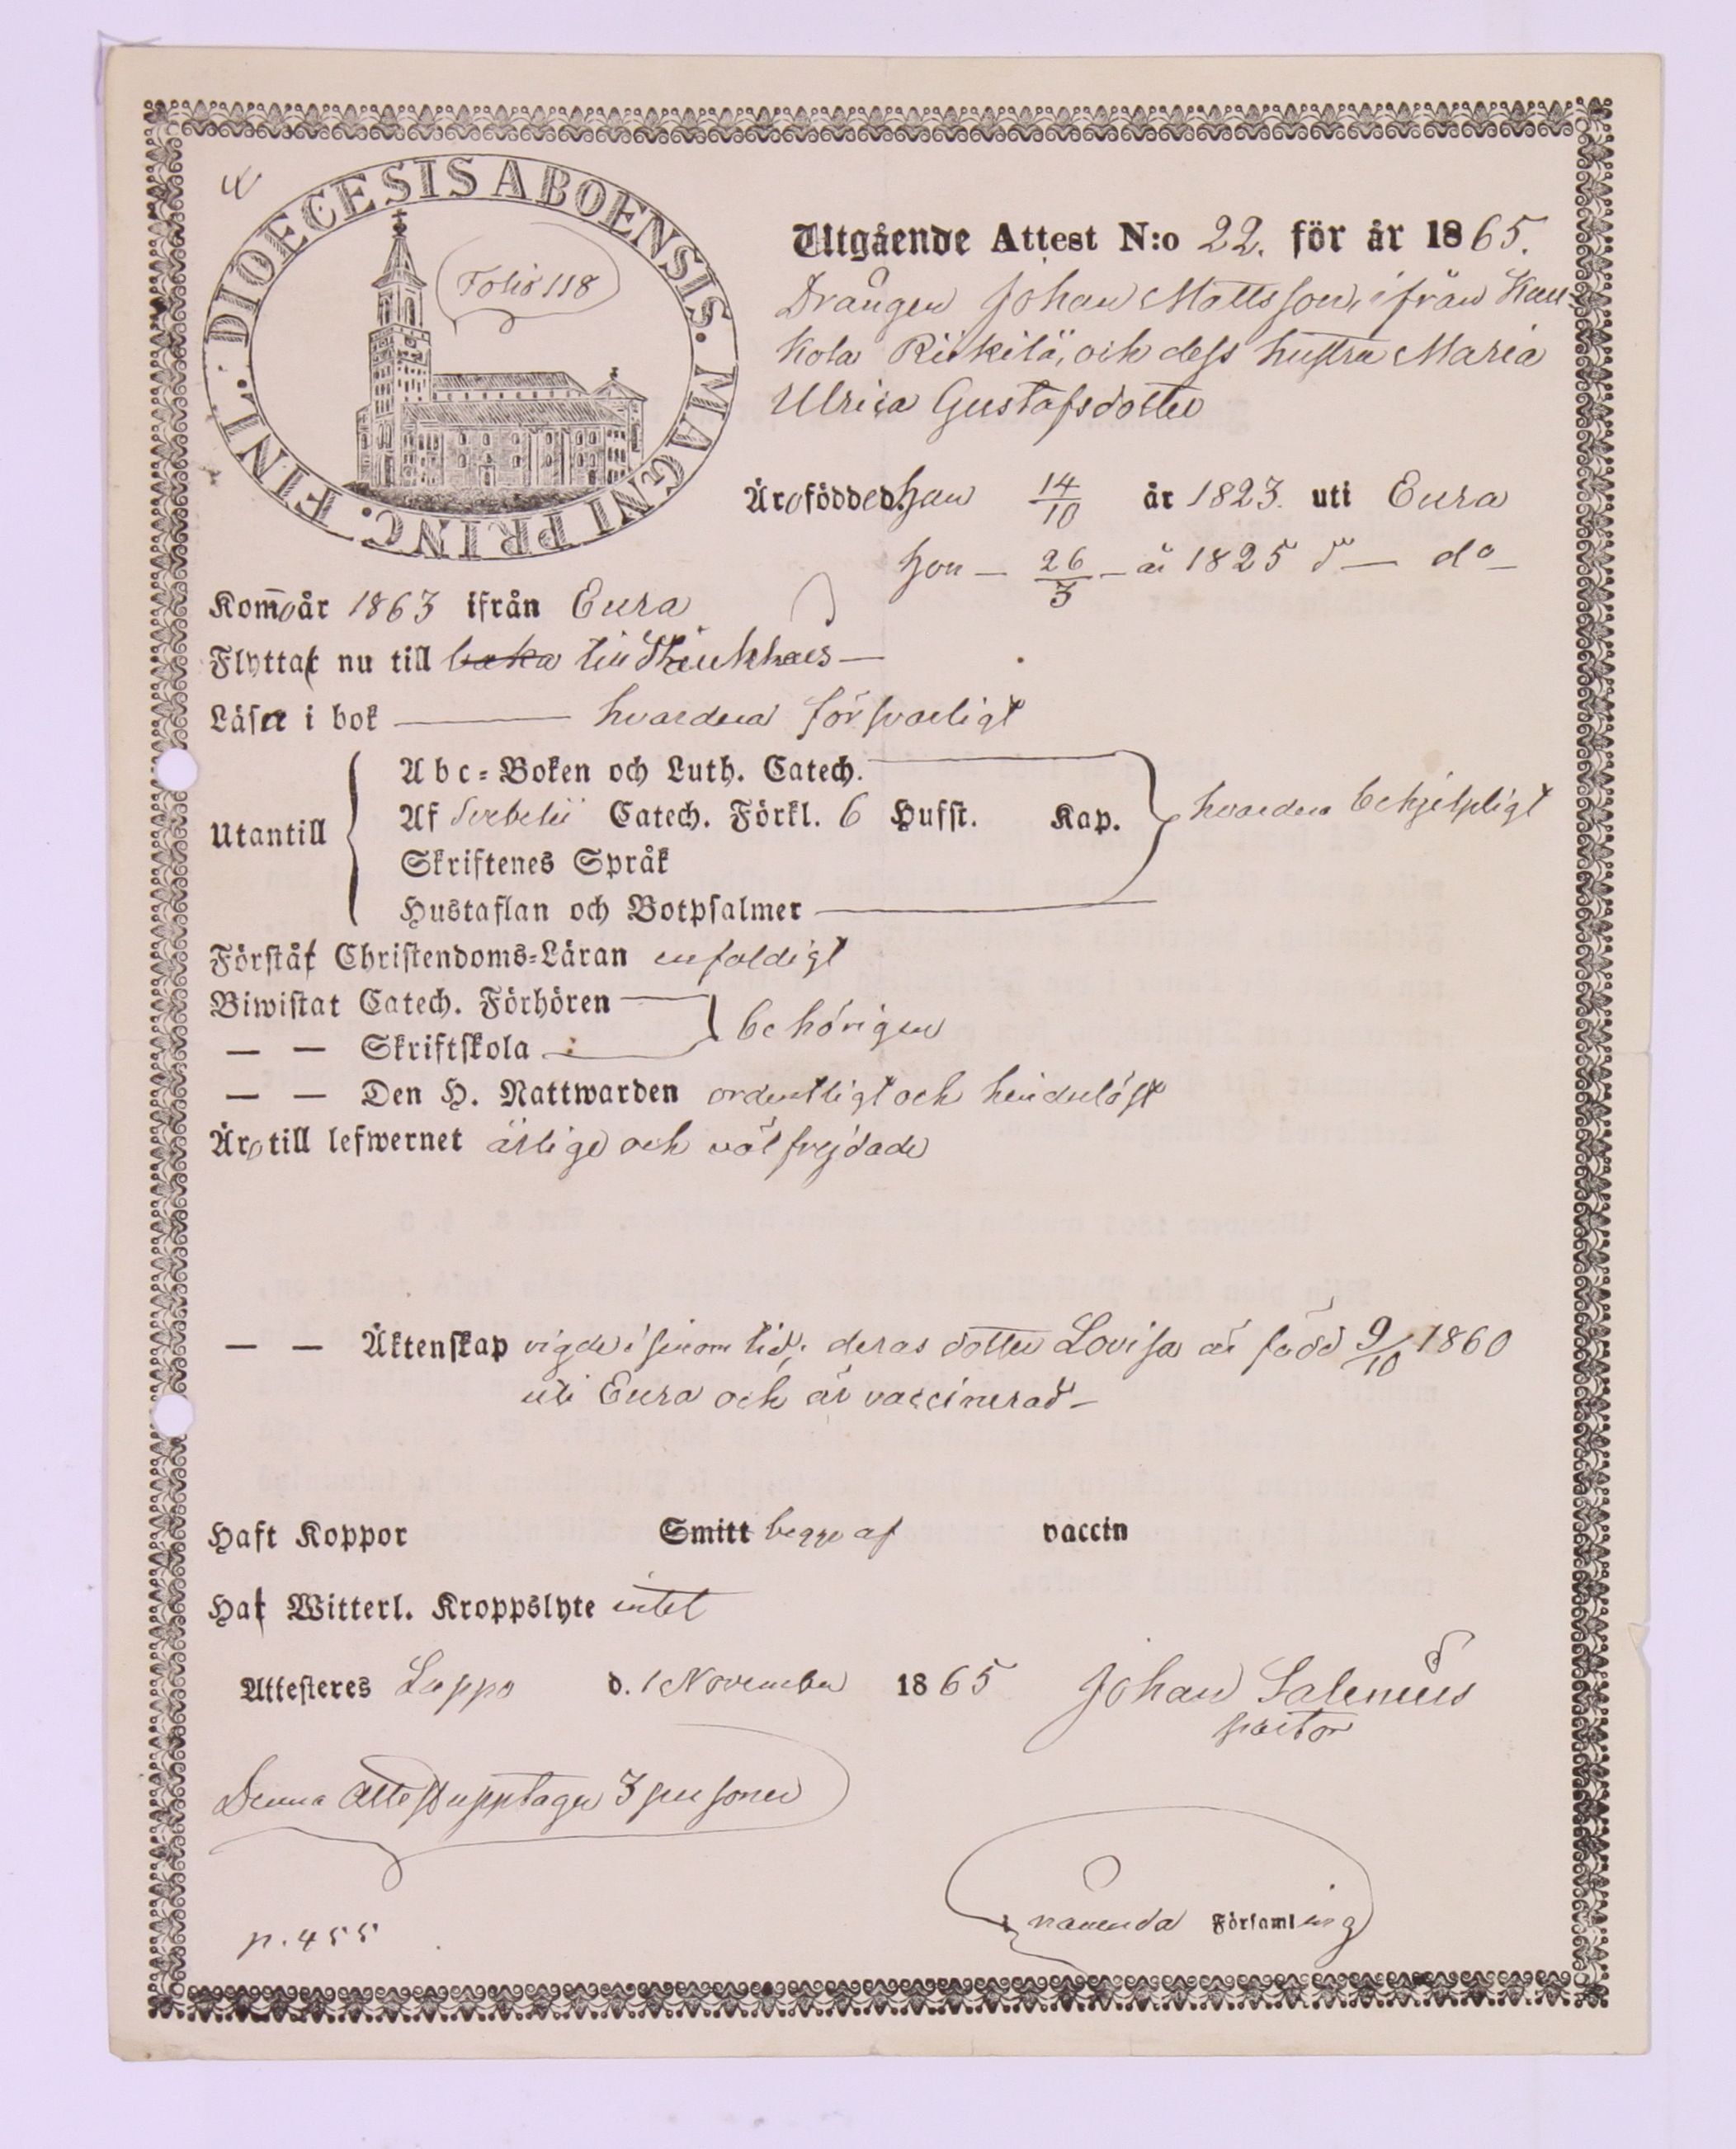 DIOECESIS ABOENSIS. MAGNI PRINC. FINL.
Folio 118
Utgående Attest N:o 22. för år 1865.
Drängen Johan Mattsson, ifrån Kau-
kola Riskilä, och dess hustru Maria
Ulrica Gustafsdotter
Äro födde d. han 14/10 år 1823. uti Eura
hon — 26/3 — år 1825 — do —
Kommo år 1863 ifrån Eura
Flytta nu till baka till Hinkkais —
Läsa i bok — hvardera försvarligt
Utantill
Abc-Boken och Luth. Catech.
Af Sverbelii Catech. Förkl. 6 Hufst. Kap.
hvardera behjelpligt
Skriftenes Språk
Hustaflan och Botpsalmer
Förstå Christendoms-Läran enfaldigt
Biwistat Catech. Förhören
behörigen
— — Skriftskola
— — Den H. Nattwarden ordentligt och hinderlöst
Äro till lefwernet ärlige och välfrejdade
— — Äktenskap vigde i sinom tid; deras dotter Lovisa är född 9/10 1860
uti Eura och är vaccinerad —
Haft Koppor Smitt begge af vaccin
Ha Witterl. Kroppslyte intet
Attesteres Lappo d. 1 November 1865 Johan Salenius
pastor
Denna Attest upptager 3 personer
i nämnda Församling
p. 455